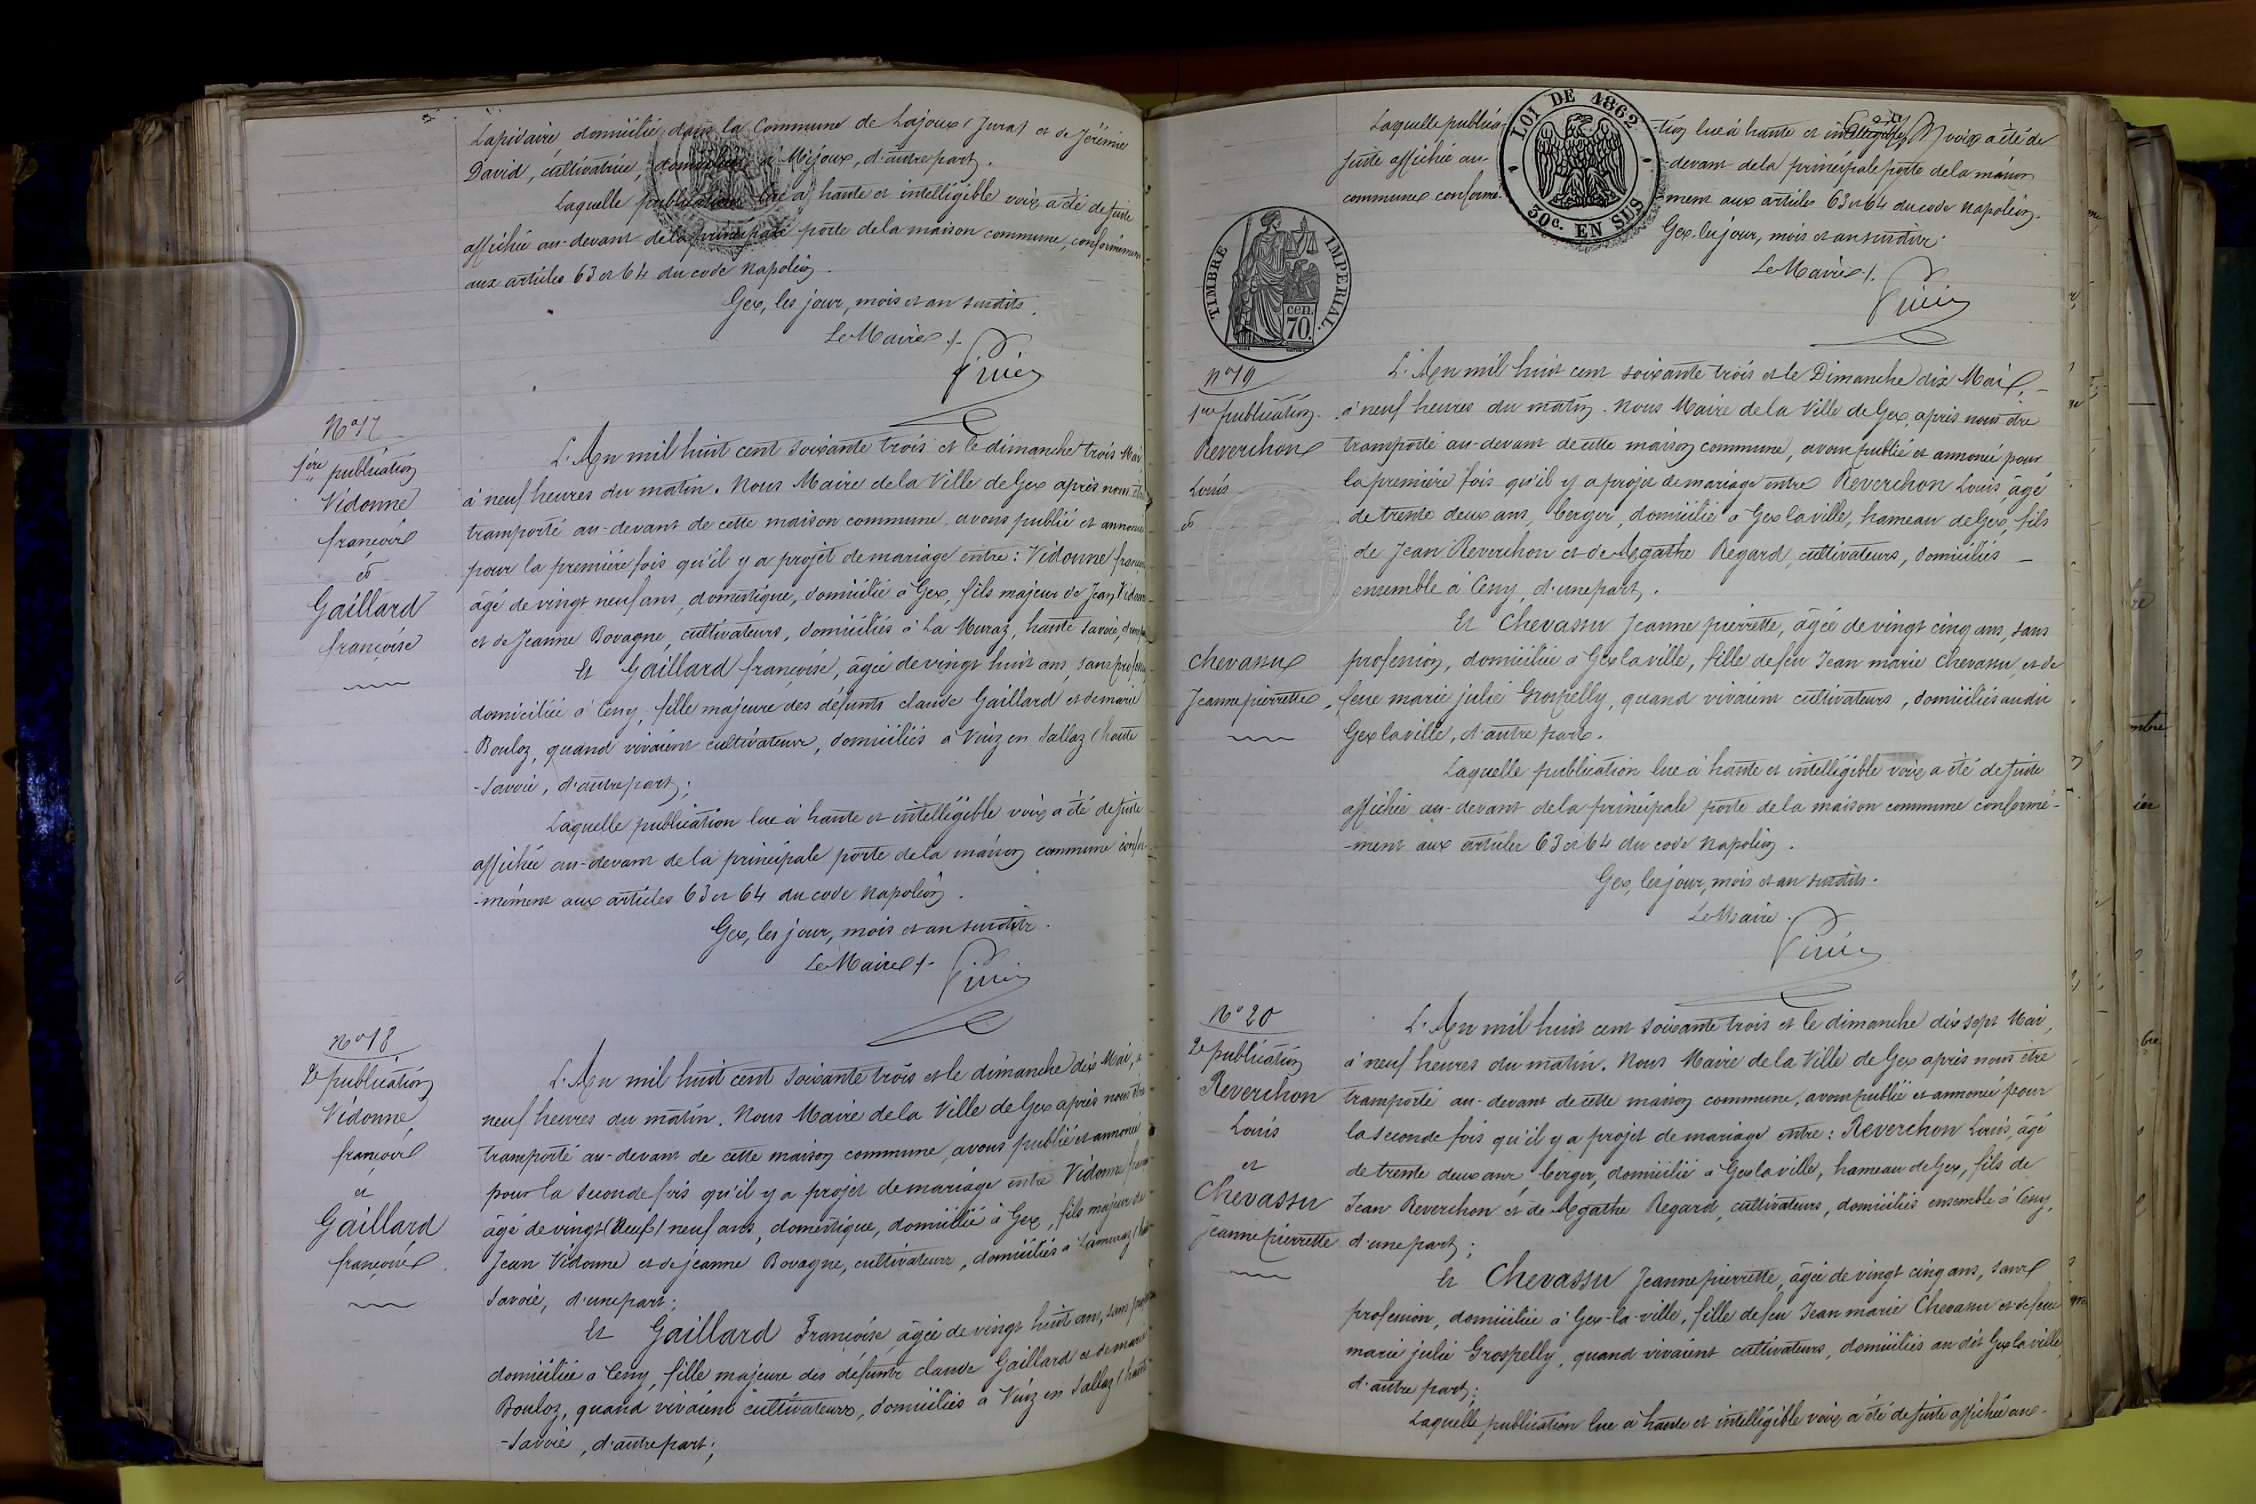 Lapidaire, domicilié dans la Commune de Lajoux (Jura) et de Jérémie
David, cultivatrice, domiciliée à Mijoux, d'autre part.
Laquelle publication lue à haute et intelligible voix a été de suite
affichée au-devant de la principale porte de la maison commune, conformément
aux articles 63 et 64 du code Napoléon.
Gex, les jour, mois et an susdits.
Le Maire
N° 17
1ère publication
Vidonne
françois
et
Gaillard
françoise
L'An mil huit cent soixante trois et le dimanche trois Mai
à neuf heures du matin. Nous Maire de la Ville de Gex après nous être
transporté au-devant de cette maison commune, avons publié et annoncé
pour la première fois qu'il y a projet de mariage entre : Vidonne françois
âgé de vingt neuf ans, domestique, domicilié à Gex, fils majeur de Jean Vidonne
et de Jeanne Bovagne, cultivateurs, domiciliés à La Muraz, haute Savoie, d'une part
Et Gaillard françoise, âgée de vingt huit ans, sans profession
domiciliée à Cessy, fille majeure des défunts claude Gaillard et de marie
Bouloz, quand vivaient cultivateurs, domiciliés à Viuz en Sallaz (haute
-Savoie, d'autre part;
Laquelle publication lue à haute et intelligible voix a été de suite
affichée au-devant de la principale porte de la maison commune confor-
-mément aux articles 63 et 64 du code Napoléon.
Gex, les jour, mois et an susdits.
Le Maire
N° 18
2e publication
Vidonne
françois
et
Gaillard
françoise
L'An mil huit cent soixante trois et le dimanche dix Mai, à
neuf heures du matin. Nous Maire de la Ville de Gex après nous être
transporté au-devant de cette maison commune, avons publié et annoncé
pour la seconde fois qu'il y a projet de mariage entre Vidonne françois
âgé de vingt (neuf) neuf ans, domestique, domicilié à Gex, fils majeur de
Jean Vidonne et de jeanne Bovagne, cultivateurs, domiciliés à Lamuraz (haute
Savoie, d'une part;
Et Gaillard Françoise, âgée de vingt huit ans, sans profession
domiciliée à Cessy, fille majeure des défunts claude Gaillard et de marie
Bouloz, quand vivaient cultivateurs, domiciliés à Viuz en Sallaz (haute
-Savoie, d'autre part;
LOI DE 1862
30c. EN SUS
Laquelle publica- -tion lue à haute et intelligible voix a été de
suite affichée au -devant de la principale porte de la maison
commune conformé- ment aux articles 63 et 64 du code Napoléon.
Gex, les jour, mois et an susdits.
Le Maire
TIMBRE IMPERIAL.
cen.
70.
N° 19
1ere publication.
Reverchon
Louis
et
chevassu
Jeanne pierrette
L'An mil huit cent soixante trois et le Dimanche dix Mai,
à neuf heures du matin. Nous Maire de la Ville de Gex, après nous être
transporté au-devant de cette maison commune, avons publié et annoncé pour
la première fois qu'il y a projet de mariage entre Reverchon Louis, âgé
de trente deux ans, berger, domicilié à Gex la ville, hameau de Gex, fils
de Jean Reverchon et de Agathe Regard, cultivateurs, domiciliés
ensemble à Cessy, d'une part.
Et Chevassu Jeanne pierrette, âgée de vingt cinq ans, sans
profession, domiciliée à Gex la ville, fille de feu Jean marie Chevassu, et de
feue marie julie Grospelly, quand vivaient cultivateurs, domiciliés au dit
Gex la ville, d'autre part.
Laquelle publication lue à haute et intelligible voix a été de suite
affichée au-devant de la principale porte de la maison commune conformé-
-ment aux articles 63 et 64 du code Napoléon.
Gex, les jour, mois et an susdits.
Le Maire.
N° 20
2e publication
Reverchon
Louis
et
Chevassu
jeanne pierrette
L'An mil huit cent soixante trois et le dimanche dix sept Mai,
à neuf heures du matin. Nous Maire de la Ville de Gex après nous être
transporté au-devant de cette maison commune, avons publié et annoncé pour
la seconde fois qu'il y a projet de mariage entre : Reverchon Louis, âgé
de trente deux ans, berger, domicilié à Gex la ville, hameau de Gex, fils de
Jean Reverchon et de Agathe Regard, cultivateurs, domiciliés ensemble à Cessy,
d'une part;
Et Chevassu Jeanne pierrette, âgée de vingt cinq ans, sans
profession, domiciliée à Gex-la-ville, fille de feu Jean marie Chevassu et de feue
marie julie Grospelly, quand vivaient cultivateurs, domiciliés au dit Gex la ville,
d'autre part;
Laquelle publication lue à haute et intelligible voix a été de suite affichée au-